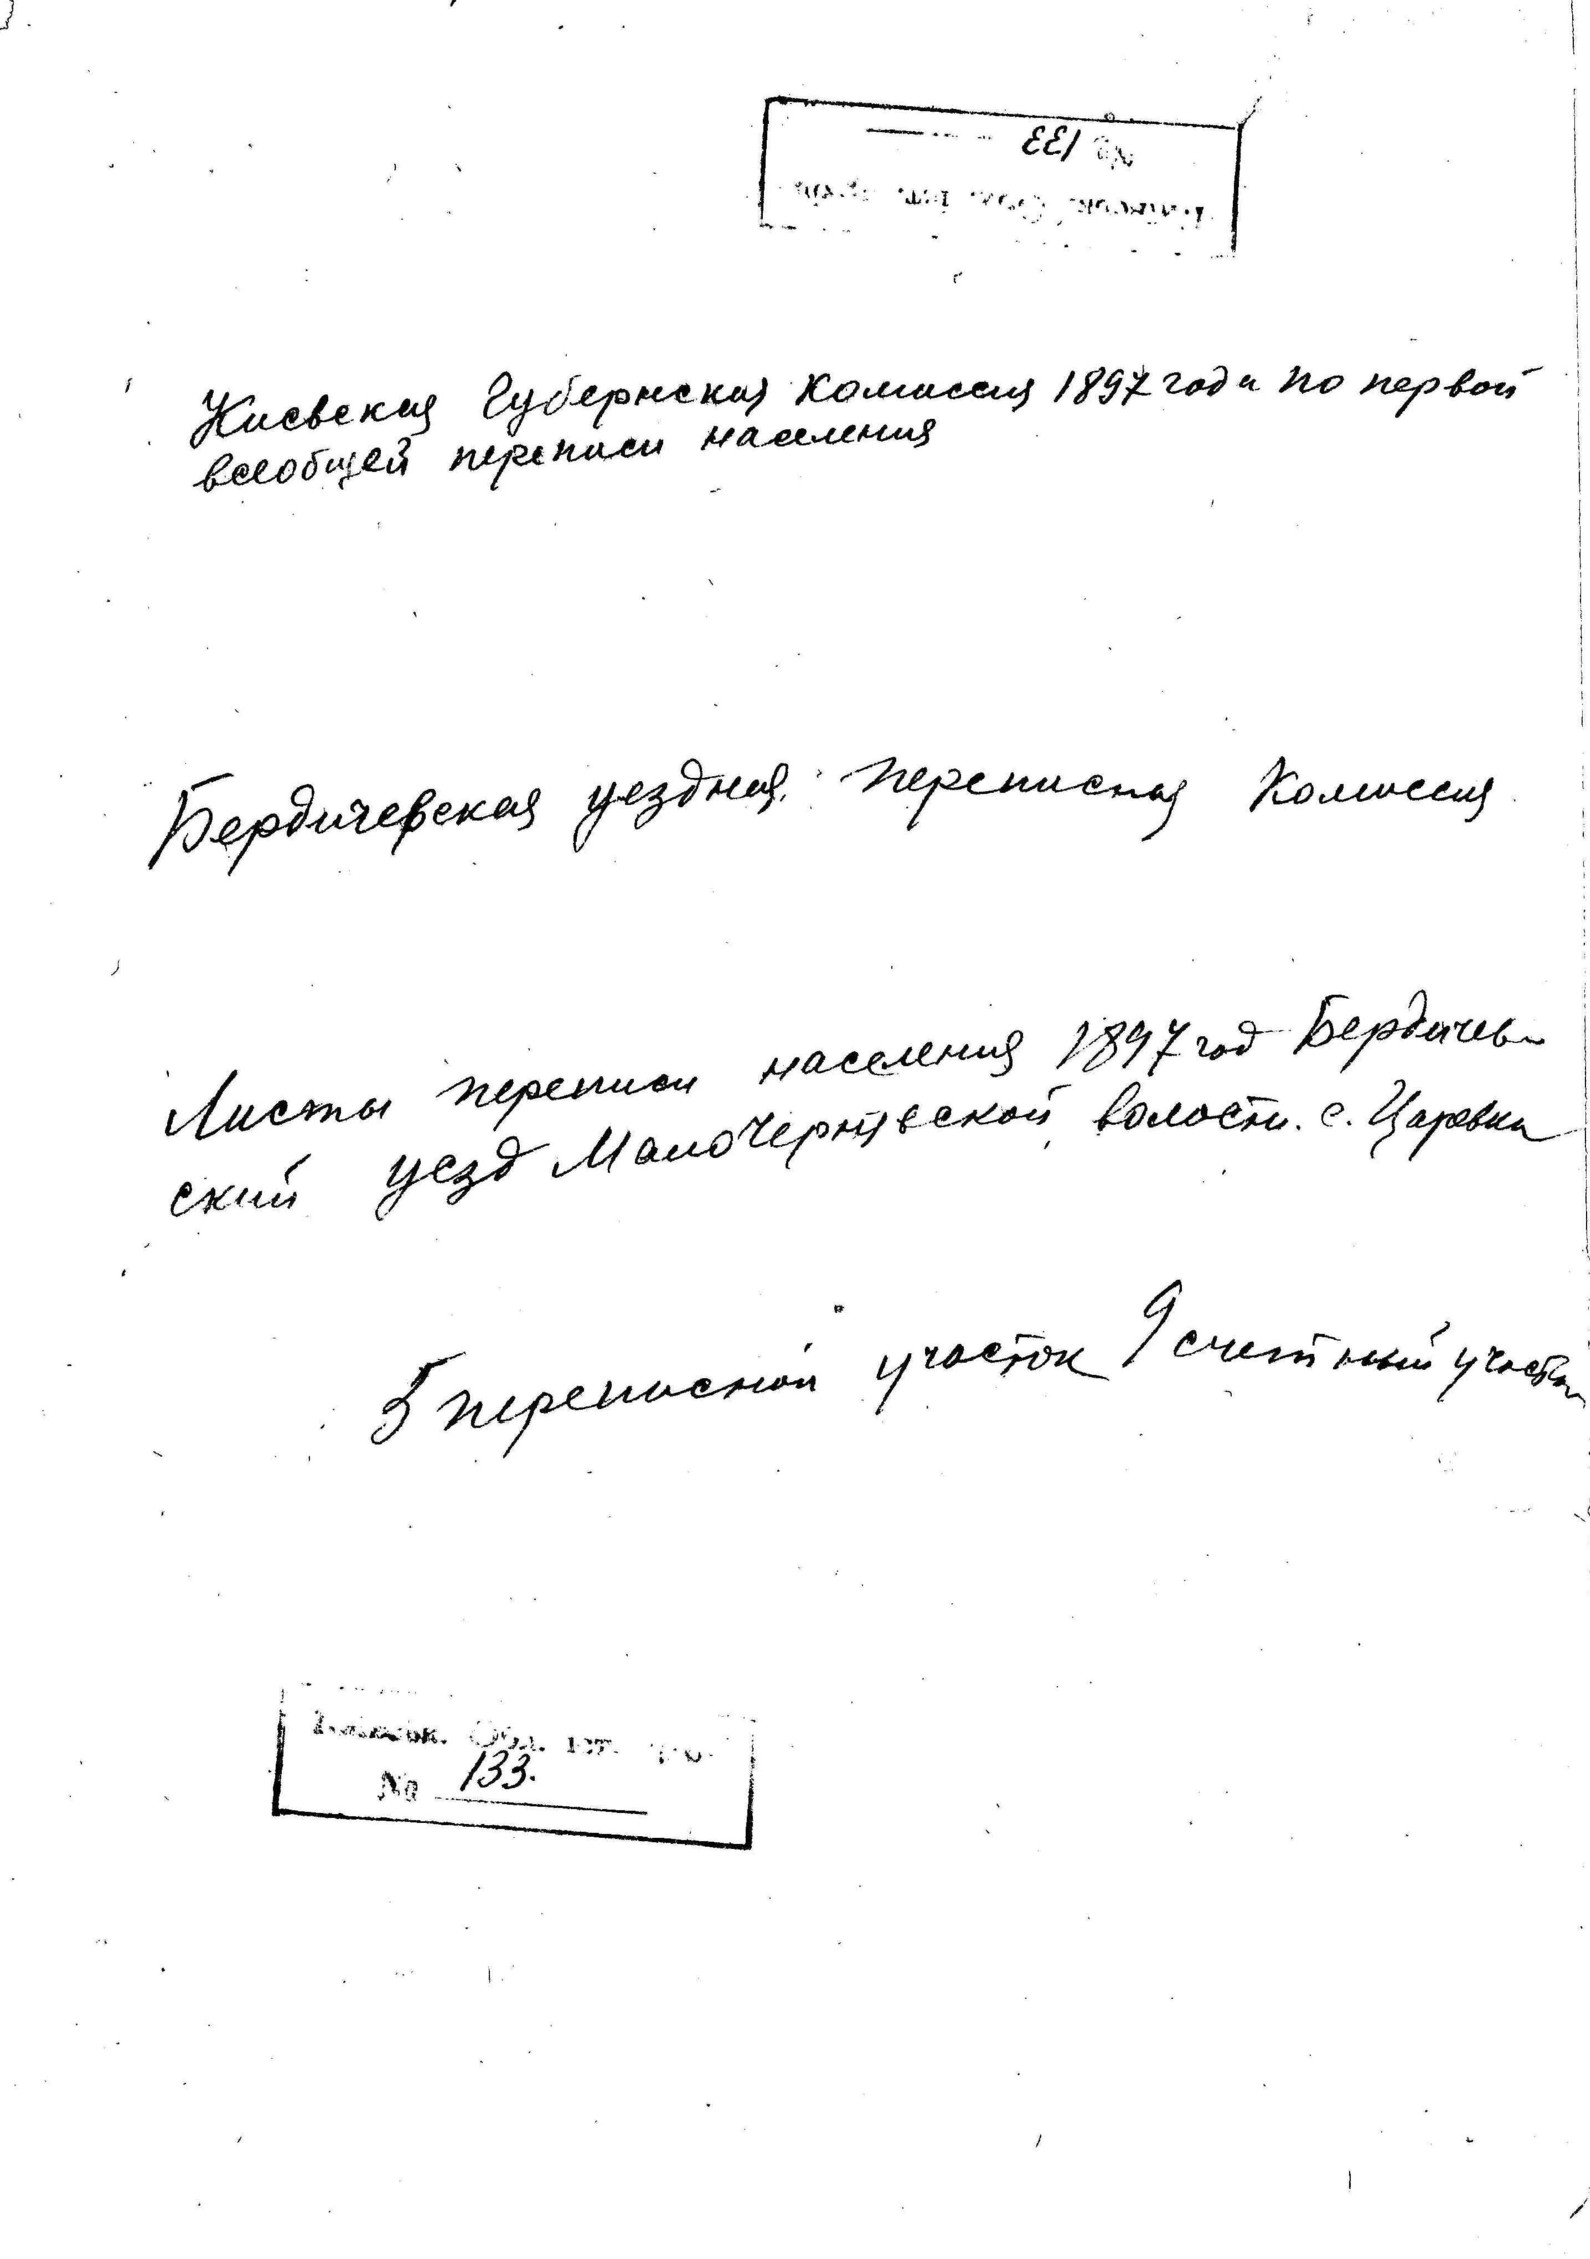 № 133
Киевская Губернская Комиссия 1897 года по первой
всеобщей переписи населения
Бердичевская уездная переписная Комиссия
Листы переписи населения 1897 год Бердичев-
ский уезд МалоЧернявской волости. с. Царевка
5 переписной участок 9 счетный участок
Обл. іст.
№ 133.